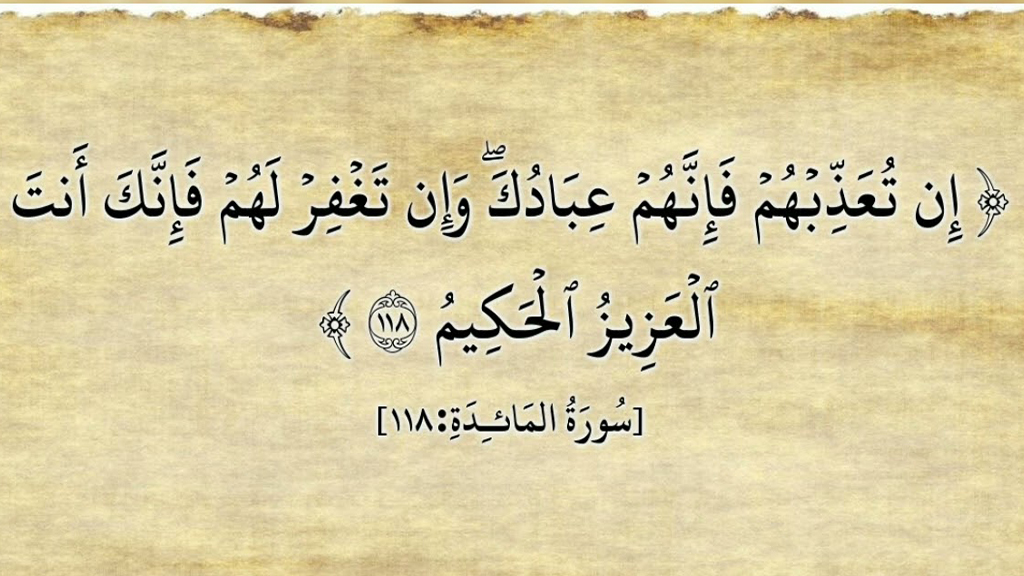 ﴿ إِن تُعَذِّبۡهُمۡ فَإِنَّهُمۡ عِبَادُكَۖ وَإِن تَغۡفِرۡ لَهُمۡ فَإِنَّكَ أَنتَ
ٱلۡعَزِيزُ ٱلۡحَكِيمُ ١١٨ ﴾
[سُورَةُ المَائـِدَةِ:١١٨]